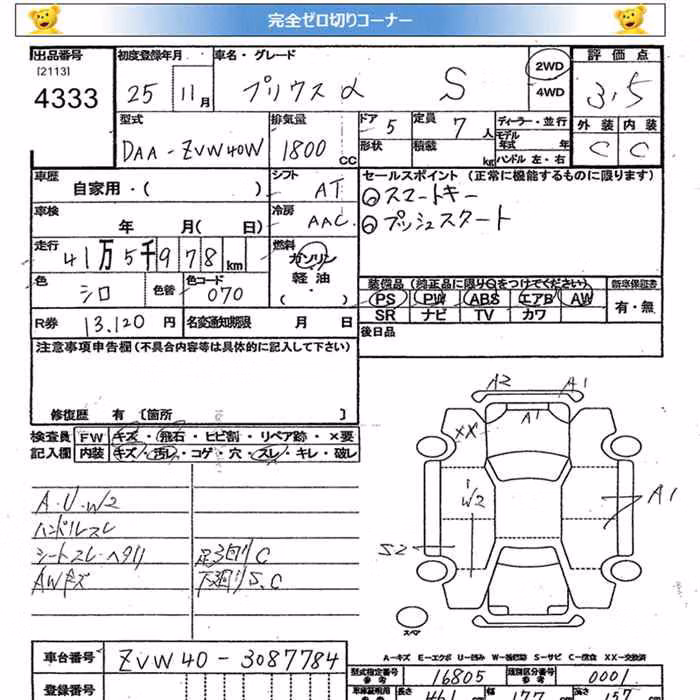 完全ゼロ切りコーナー
出品番号 初度登録年月 車名・グレード 2WD 評価点
[2113]
4333 25 11月 プリウスα S 4WD 3,5
型式 排気量 ドア 5 定員 7人 ディーラー・並行 外装 内装
DAA-ZVW40W 1800cc 形状 積載 kg モデル年式 年 C C
ハンドル 左・右
車歴 自家用・( ) シフト AT セールスポイント (正常に機能するものに限ります)
車検 年 月( 日) 冷房 AAC スマートキー
プッシュスタート
走行 41万5千978km 燃料 ガソリン 軽油 ( ・ )
色 シロ 色替 色コード 070 装備品 (純正品に限り○をつけてください) 新車保証書
PS PW ABS エアB AW 有・無
R券 13,120円 名変通知期限 月 日 SR ナビ TV カワ
注意事項申告欄(不具合内容等は具体的に記入して下さい) 後日品
修復歴 有 [箇所 ]
検査員 FW キズ・飛石・ヒビ割・リペア跡・×要
記入欄 内装 キズ・汚レ・コゲ・穴・スレ・キレ・破レ
A2 A1
A1
XX
W2
A1
S2
A・U・W2
ハンドルスレ
シートスレ・ヘタリ 足廻りC
AWキズ 下廻りS.C
スペア
A-キズ E-エクボ U-凹み W-補修跡 S-サビ C-腐食 XX-交換済
車台番号 ZVW40-3087784 型式指定番号 参考 16805 類別区分番号 参考 0001
登録番号 長さ 461 cm 幅 177 cm 高さ 157 cm